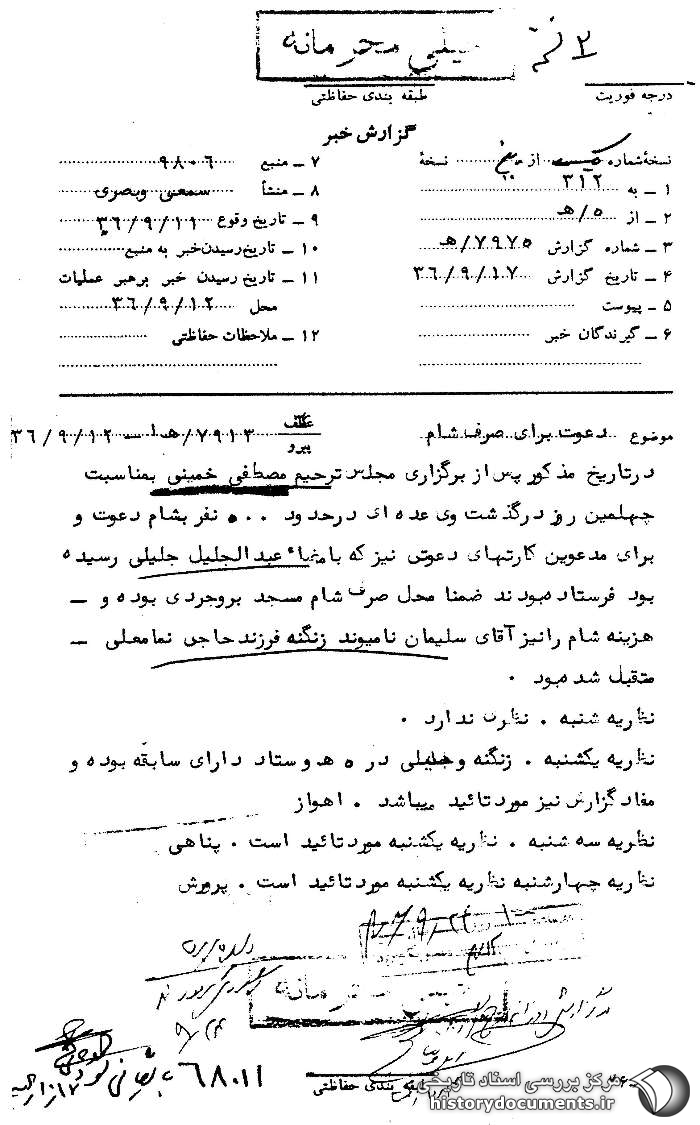 خیلی محرمانه
درجه فوریت
طبقه بندی حفاظتی
گزارش خبر
نسخهٔ شماره یک از پنج نسخهٔ
۱ ـ به ۳۱۲
۲ ـ از ۵/هـ
۳ ـ شماره گزارش ۷۹۷۵/هـ
۴ ـ تاریخ گزارش ۳۶/۹/۱۷
۵ ـ پیوست
۶ ـ گیرندگان خبر
۷ ـ منبع ۹۸۰۶
۸ ـ منشأ سمعی وبصری
۹ ـ تاریخ وقوع ۳۶/۹/۱۱
۱۰ ـ تاریخ رسیدن خبر به منبع
۱۱ ـ تاریخ رسیدن خبر برهبر عملیات
محل ۳۶/۹/۱۲
۱۲ ـ ملاحظات حفاظتی
موضوع دعوت برای صرف شام
عطف
پیرو ۷۹۱۳/هـ ۱ ـ ۳۶/۹/۱۲
درتاریخ مذکور پس از برگزاری مجلس ترحیم مصطفی خمینی بمناسبت
چهلمین روز درگذشت وی عده ای درحدود ۵۰۰ نفر بشام دعوت و
برای مدعوین کارتهای دعوتی نیز که بامضاء عبدالجلیل جلیلی رسیده
بود فرستاده بودند ضمنا محل صرف شام مسجد بروجردی بوده و ـ
هزینه شام رانیز آقای سلیمان نامیوند زنگنه فرزند حاجی نمامعلی ـ
متقبل شده بود .
نظریه شنبه . نظری ندارد .
نظریه یکشنبه . زنگنه وجلیلی در ۵ هـ وستاد دارای سابقه بوده و
مفاد گزارش نیز مورد تائید میباشد . اهواز
نظریه سه شنبه . نظریه یکشنبه مورد تائید است . پناهی
نظریه چهارشنبه نظریه یکشنبه مورد تائید است . پرورش
خیلی محرمانه
۹/۲۴
۶۸۰۱۱
طبقه بندی حفاظتی
مرکز بررسی اسناد تاریخی
historydocuments.ir